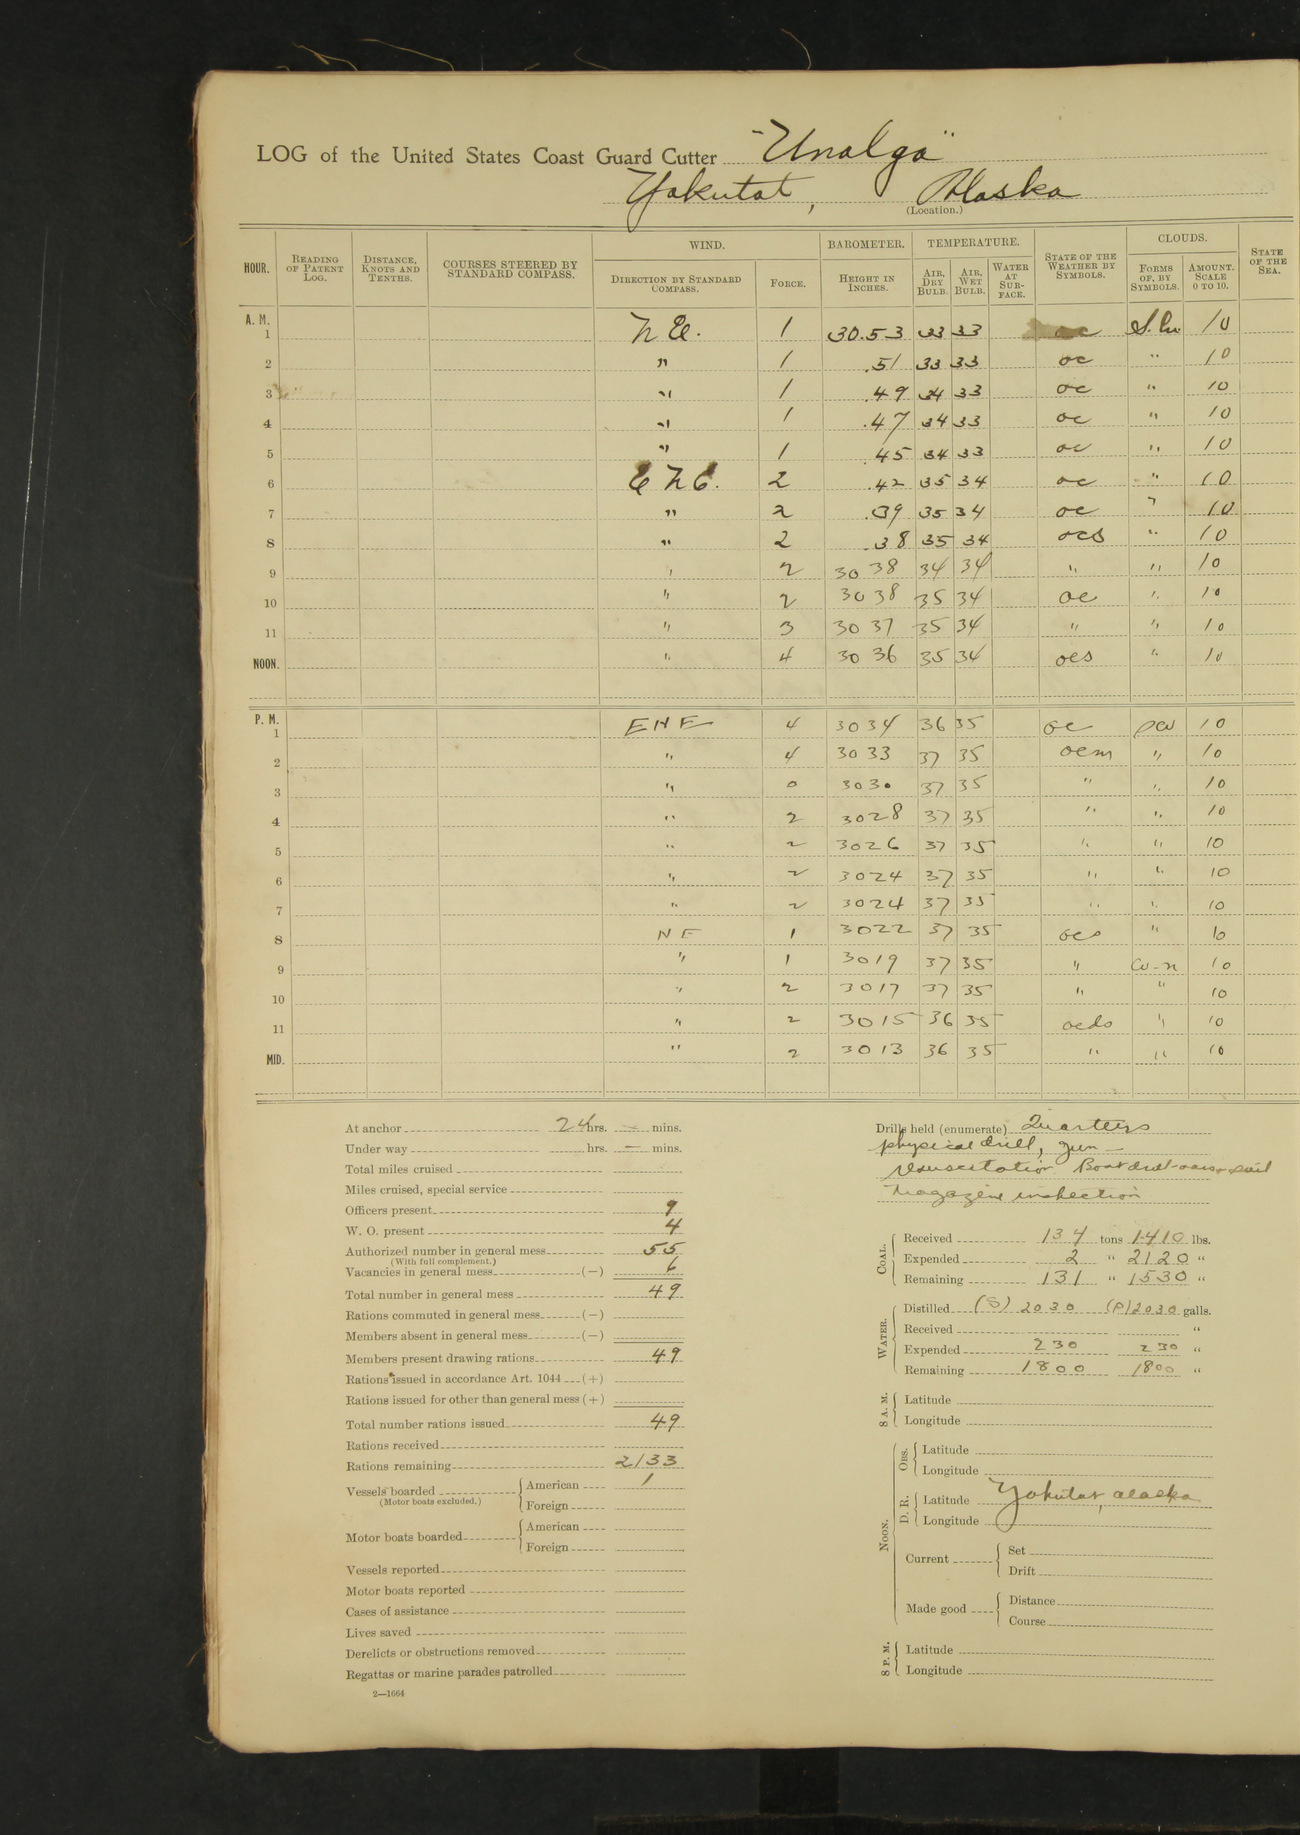 LOG of the United States Coast Guard Cutter "Unalga"
Yakutat, Alaska
(Location.)
HOUR. READING OF PATENT LOG. DISTANCE, KNOTS AND TENTHS. COURSES STEERED BY STANDARD COMPASS. WIND. BAROMETER. TEMPERATURE. STATE OF THE WEATHER BY SYMBOLS. CLOUDS. STATE OF THE SEA.
DIRECTION BY STANDARD COMPASS. FORCE. HEIGHT IN INCHES. AIR, DRY BULB. AIR, WET BULB. WATER AT SURFACE. FORMS OF, BY SYMBOLS. AMOUNT. SCALE 0 TO 10.
A. M.
1 N E. 1 30.53 33 33 oc S.Cu 10
2 " 1 .51 33 33 oc " 10
3 " 1 .49 34 33 oc " 10
4 " 1 .47 34 33 oc " 10
5 " 1 .45 34 33 oc " 10
6 E N E. 2 .42 35 34 oc " 10
7 " 2 .39 35 34 oc " 10
8 " 2 .38 35 34 ocs " 10
9 " 2 30 38 34 34 " " 10
10 " 2 30 38 35 34 oc " 10
11 " 3 30 37 35 34 " " 10
NOON. " 4 30 36 35 34 ocs " 10
P. M.
1 ENE 4 30 34 36 35 oc 10
2 " 4 30 33 37 35 ocm " 10
3 " 0 30 30 37 35 " " 10
4 " 2 30 28 37 35 " " 10
5 " 2 30 26 37 35 " " 10
6 " 2 30 24 37 35 " " 10
7 " 2 30 24 37 35 " " 10
8 NE 1 30 22 37 35 ocs " 10
9 " 1 30 19 37 35 " Cu-n 10
10 " 2 30 17 37 35 " " 10
11 " 2 30 15 36 35 ocds " 10
MID. " 2 30 13 36 35 " " 10
At anchor 24 hrs. — mins.
Under way hrs. — mins.
Total miles cruised
Miles cruised, special service
Officers present 9
W. O. present 4
Authorized number in general mess 55
(With full complement.)
Vacancies in general mess (—) 6
Total number in general mess 49
Rations commuted in general mess (—)
Members absent in general mess (—)
Members present drawing rations 49
Rations issued in accordance Art. 1044 (+)
Rations issued for other than general mess (+)
Total number rations issued 49
Rations received
Rations remaining 2133
Vessels boarded American 1
(Motor boats excluded.) Foreign
Motor boats boarded American
Foreign
Vessels reported
Motor boats reported
Cases of assistance
Lives saved
Derelicts or obstructions removed
Regattas or marine parades patrolled
2—1664
Drills held (enumerate) Quarters
physical drill, gun —
resuscitation Boat drill-oars & sail
Magazine inspection
COAL.
Received 134 tons 1410 lbs.
Expended 2 " 2120 "
Remaining 131 " 1530 "
WATER.
Distilled (S) 2030 (P) 2030 galls.
Received "
Expended 230 230 "
Remaining 1800 1800 "
8 A. M. Latitude
Longitude
NOON.
OBS. Latitude
Longitude
D. R. Latitude Yakutat, Alaska
Longitude
Current Set
Drift
Made good Distance
Course
8 P. M. Latitude
Longitude